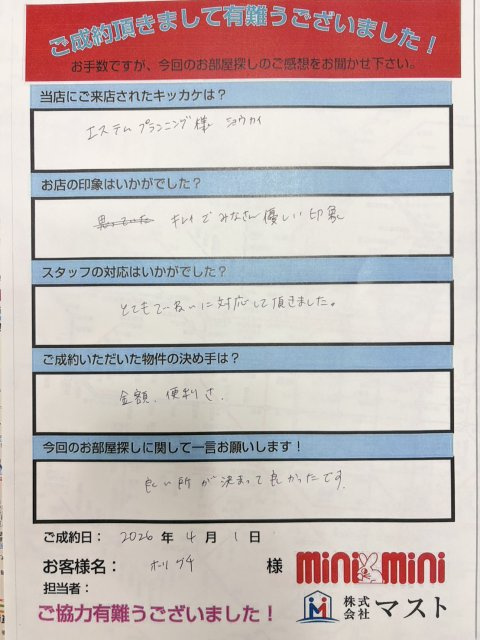 ご成約頂きまして有難うございました!
お手数ですが、今回のお部屋探しのご感想をお聞かせ下さい。
当店にご来店されたキッカケは?
エステムプランニング様 ショウカイ
お店の印象はいかがでした?
キレイでみなさん優しい印象
スタッフの対応はいかがでした?
とてもていねいに対応して頂きました。
ご成約いただいた物件の決め手は?
金額、便利さ.
今回のお部屋探しに関して一言お願いします!
良い所が決まって良かったです。
ご成約日: 2026 年 4 月 1 日
お客様名: ホリグチ 様
mini mini
担当者:
株式会社マスト
ご協力有難うございました!